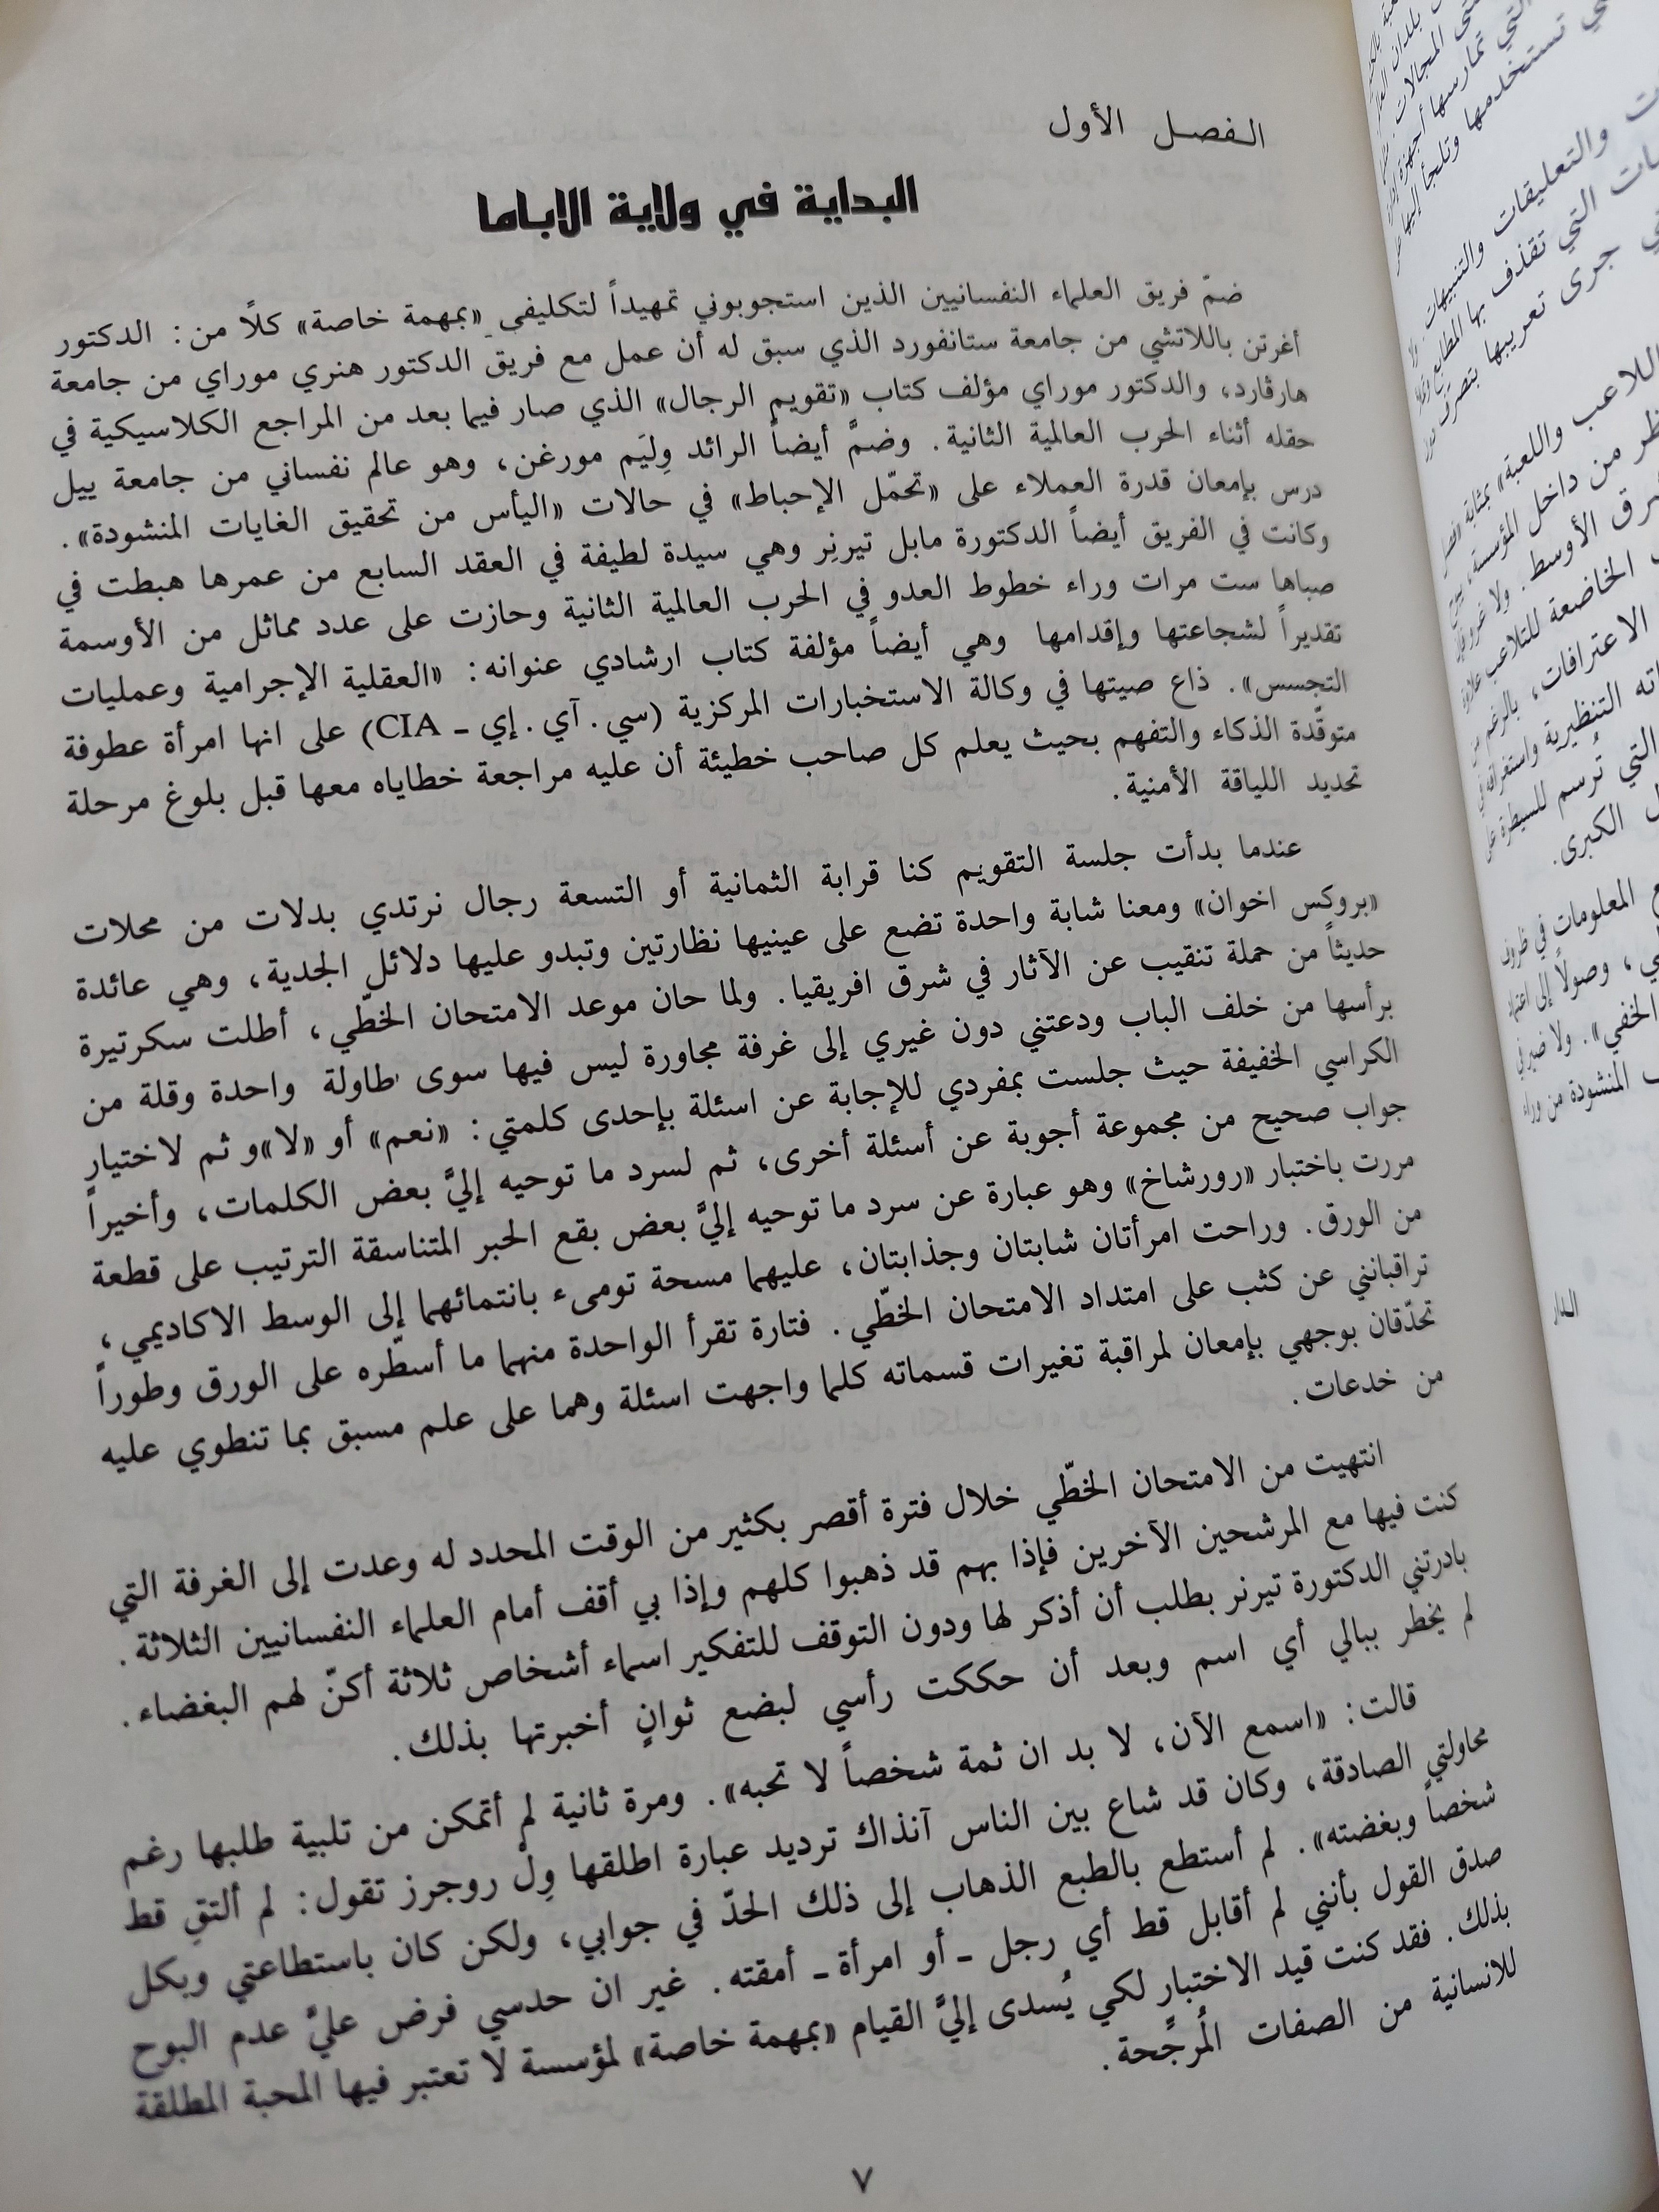 الفصل الأول
البداية في ولاية الاباما
ضمّ فريق العلماء النفسانيين الذين استجوبوني تمهيداً لتكليفي «بمهمة خاصة» كلاً من: الدكتور
أغرتن باللاتشي من جامعة ستانفورد الذي سبق له أن عمل مع فريق الدكتور هنري موراي من جامعة
هارڤارد، والدكتور موراي مؤلف كتاب «تقويم الرجال» الذي صار فيما بعد من المراجع الكلاسيكية في
حقله أثناء الحرب العالمية الثانية. وضمَّ أيضاً الرائد وِليَم مورغن، وهو عالم نفساني من جامعة ييل
درس بإمعان قدرة العملاء على «تحمّل الإحباط» في حالات «اليأس من تحقيق الغايات المنشودة».
وكانت في الفريق أيضاً الدكتورة مابل تيرنِر وهي سيدة لطيفة في العقد السابع من عمرها هبطت في
صباها ست مرات وراء خطوط العدو في الحرب العالمية الثانية وحازت على عدد مماثل من الأوسمة
تقديراً لشجاعتها وإقدامها وهي أيضاً مؤلفة كتاب ارشادي عنوانه: «العقلية الإجرامية وعمليات
التجسس». ذاع صيتها في وكالة الاستخبارات المركزية (سي. آي. إي ـ CIA) على انها امرأة عطوفة
متوقّدة الذكاء والتفهم بحيث يعلم كل صاحب خطيئة أن عليه مراجعة خطاياه معها قبل بلوغ مرحلة
تحديد اللياقة الأمنية.
عندما بدأت جلسة التقويم كنا قرابة الثمانية أو التسعة رجال نرتدي بدلات من محلات
«بروكس اخوان» ومعنا شابة واحدة تضع على عينيها نظارتين وتبدو عليها دلائل الجدية، وهي عائدة
حديثاً من حملة تنقيب عن الآثار في شرق افريقيا. ولما حان موعد الامتحان الخطّي، أطلت سكرتيرة
برأسها من خلف الباب ودعتني دون غيري إلى غرفة مجاورة ليس فيها سوى طاولة واحدة وقلة من
الكراسي الخفيفة حيث جلست بمفردي للإجابة عن اسئلة بإحدى كلمتي: «نعم» أو «لا»و ثم لاختيار
جواب صحيح من مجموعة أجوبة عن أسئلة أخرى، ثم لسرد ما توحيه إليَّ بعض الكلمات، وأخيراً
مررت باختبار «رورشاخ» وهو عبارة عن سرد ما توحيه إليَّ بعض بقع الحبر المتناسقة الترتيب على قطعة
من الورق. وراحت امرأتان شابتان وجذابتان، عليهما مسحة تومىء بانتمائهما إلى الوسط الاكاديمي،
تراقبانني عن كثب على امتداد الامتحان الخطّي. فتارة تقرأ الواحدة منهما ما أسطّره على الورق وطوراً
تحدّقان بوجهي بإمعان لمراقبة تغيرات قسماته كلما واجهت اسئلة وهما على علم مسبق بما تنطوي عليه
من خدعات.
انتهيت من الامتحان الخطّي خلال فترة أقصر بكثير من الوقت المحدد له وعدت إلى الغرفة التي
كنت فيها مع المرشحين الآخرين فإذا بهم قد ذهبوا كلهم وإذا بي أقف أمام العلماء النفسانيين الثلاثة.
بادرتني الدكتورة تيرنر بطلب أن أذكر لها ودون التوقف للتفكير اسماء أشخاص ثلاثة أكنّ لهم البغضاء.
لم يخطر ببالي أي اسم وبعد أن حككت رأسي لبضع ثوانٍ أخبرتها بذلك.
قالت: «اسمع الآن، لا بد ان ثمة شخصاً لا تحبه». ومرة ثانية لم أتمكن من تلبية طلبها رغم
محاولتي الصادقة، وكان قد شاع بين الناس آنذاك ترديد عبارة اطلقها وِلْ روجرز تقول: لم ألتقِ قط
شخصاً وبغضته». لم أستطع بالطبع الذهاب إلى ذلك الحدّ في جوابي، ولكن كان باستطاعتي وبكل
صدق القول بأنني لم أقابل قط أي رجل ـ أو امرأة ـ أمقته. غير ان حدسي فرض عليَّ عدم البوح
بذلك. فقد كنت قيد الاختبار لكي يُسدى إليَّ القيام «بمهمة خاصة» لمؤسسة لا تعتبر فيها المحبة المطلقة
للانسانية من الصفات المُرجَّحة.
٧
والتعليقات والتنبيهات
التي تقذف بها المطابع
جرى تعريبها بتصرف
اللاعب واللعبة» بمثابة
من داخل المؤسسة،
الأوسط. ولا غرو
الخاضعة للتلاعب
الاعترافات، بالرغم من
التنظيرية واستغراقه في
التي تُرسم للسيطرة على
الكبرى.
المعلومات في ظروف
وصولاً إلى اعتماد
الخفي». ولا ضير في
المنشودة من وراء
الدار